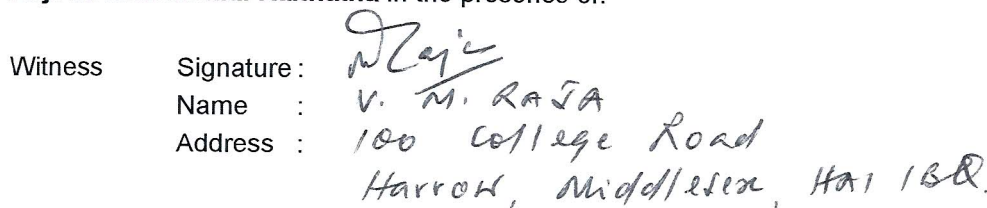 in the presence of:
Witness Signature :
Name : V. M. RAJA
Address : 100 College Road
Harrow, Middlesex, HA1 1BQ.